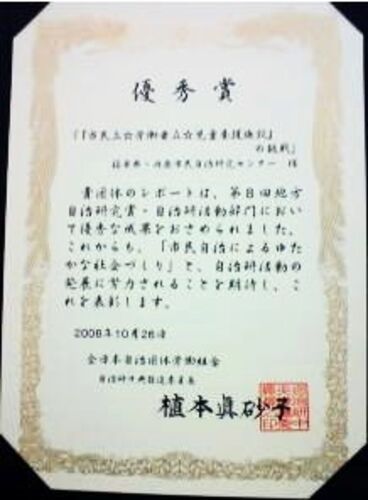 優秀賞
「『市民立☆労働者立☆児童養護施設』
の挑戦」
市民自治研究センター 様
貴団体のレポートは、第8回地方
自治研究賞・自治研活動部門におい
て優秀な成果をおさめられました。
これからも、「市民自治によるゆた
かな社会づくり」と、自治研活動の
発展に努力されることを期待し、こ
れを表彰します。
2008年10月26日
全日本自治団体労働組合
自治研中央推進委員長
植本眞砂子